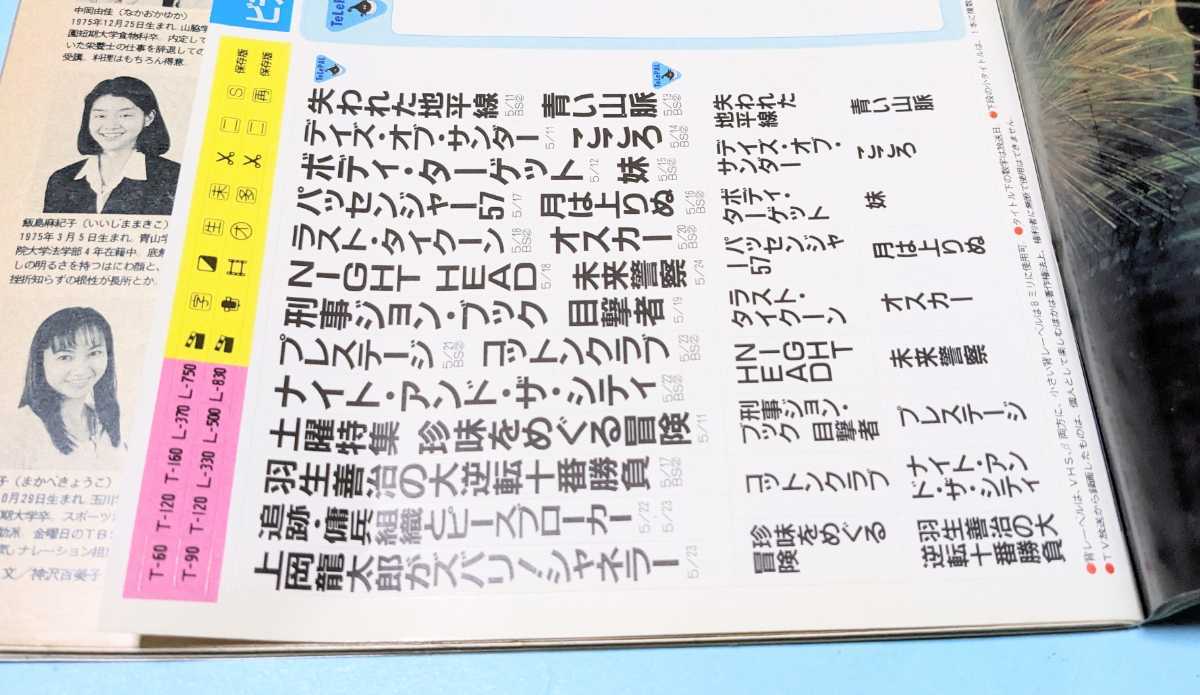 中岡由佳（なかおかゆか）
1975年12月25日生まれ. 山脇学
園短期大学食物科卒. 内定して
いた栄養士の仕事を辞退しての
受講. 料理はもちろん得意.
飯島麻紀子（いいじままきこ）
1975年3月5日生まれ. 青山学
院大学法学部4年在籍中. 底無
しの明るさを持つはにわ顔と、
挫折知らずの根性が長所とか.
子（まかべきょうこ）
0月29日生まれ. 玉川
期大学卒. スポーツ
効派. 金曜日のTB
文／神沢百美子
ビデ
TeLePAL
保存版
保存版
S
再
二
二
未
多
生
字
T-60 T-120 T-160 L-370 L-750
T-90 T-120 L-330 L-500 L-830
TeLePAL
TeLePAL
失われた地平線 5/11 BS②
青い山脈 5/13 BS②
デイズ・オブ・サンダー 5/11
こころ 5/14 BS②
ボディ・ターゲット 5/12
妹 5/15 BS②
パッセンジャー57 5/17
月は上りぬ 5/16 BS②
ラスト・タイクーン 5/18 BS②
オスカー 5/20 BS②
NIGHT HEAD 5/18
未来警察 5/24
刑事ジョン・ブック 目撃者 5/19
プレステージ 5/21 BS②
コットンクラブ 5/23 BS②
ナイト・アンド・ザ・シティ 5/22 BS②
土曜特集 珍味をめぐる冒険 5/11
羽生善治の大逆転十番勝負 5/17 BS②
追跡・傭兵組織とピースブローカー 5/22 5/23
上岡龍太郎がズバリ！シャネラー 5/23
失われた
地平線
青い山脈
デイズ・オブ・
サンダー
こころ
ボディ・
ターゲット
妹
パッセンジャー
57
月は上りぬ
ラスト・
タイクーン
オスカー
NIGHT
HEAD
未来警察
刑事ジョン・
ブック 目撃者
プレステージ
コットンクラブ
ナイト・アン
ド・ザ・シティ
珍味をめぐる
冒険
羽生善治の大
逆転十番勝負
●背レーベルは、VHS、β両方に、小さい背レーベルは8ミリに使用可. ●タイトル下の数字は放送日. ●下段の小タイトルは、1本に複数
●TV放送から録画したものは、個人として楽しむほかは著作権法上、権利者に無断で使用はできません.